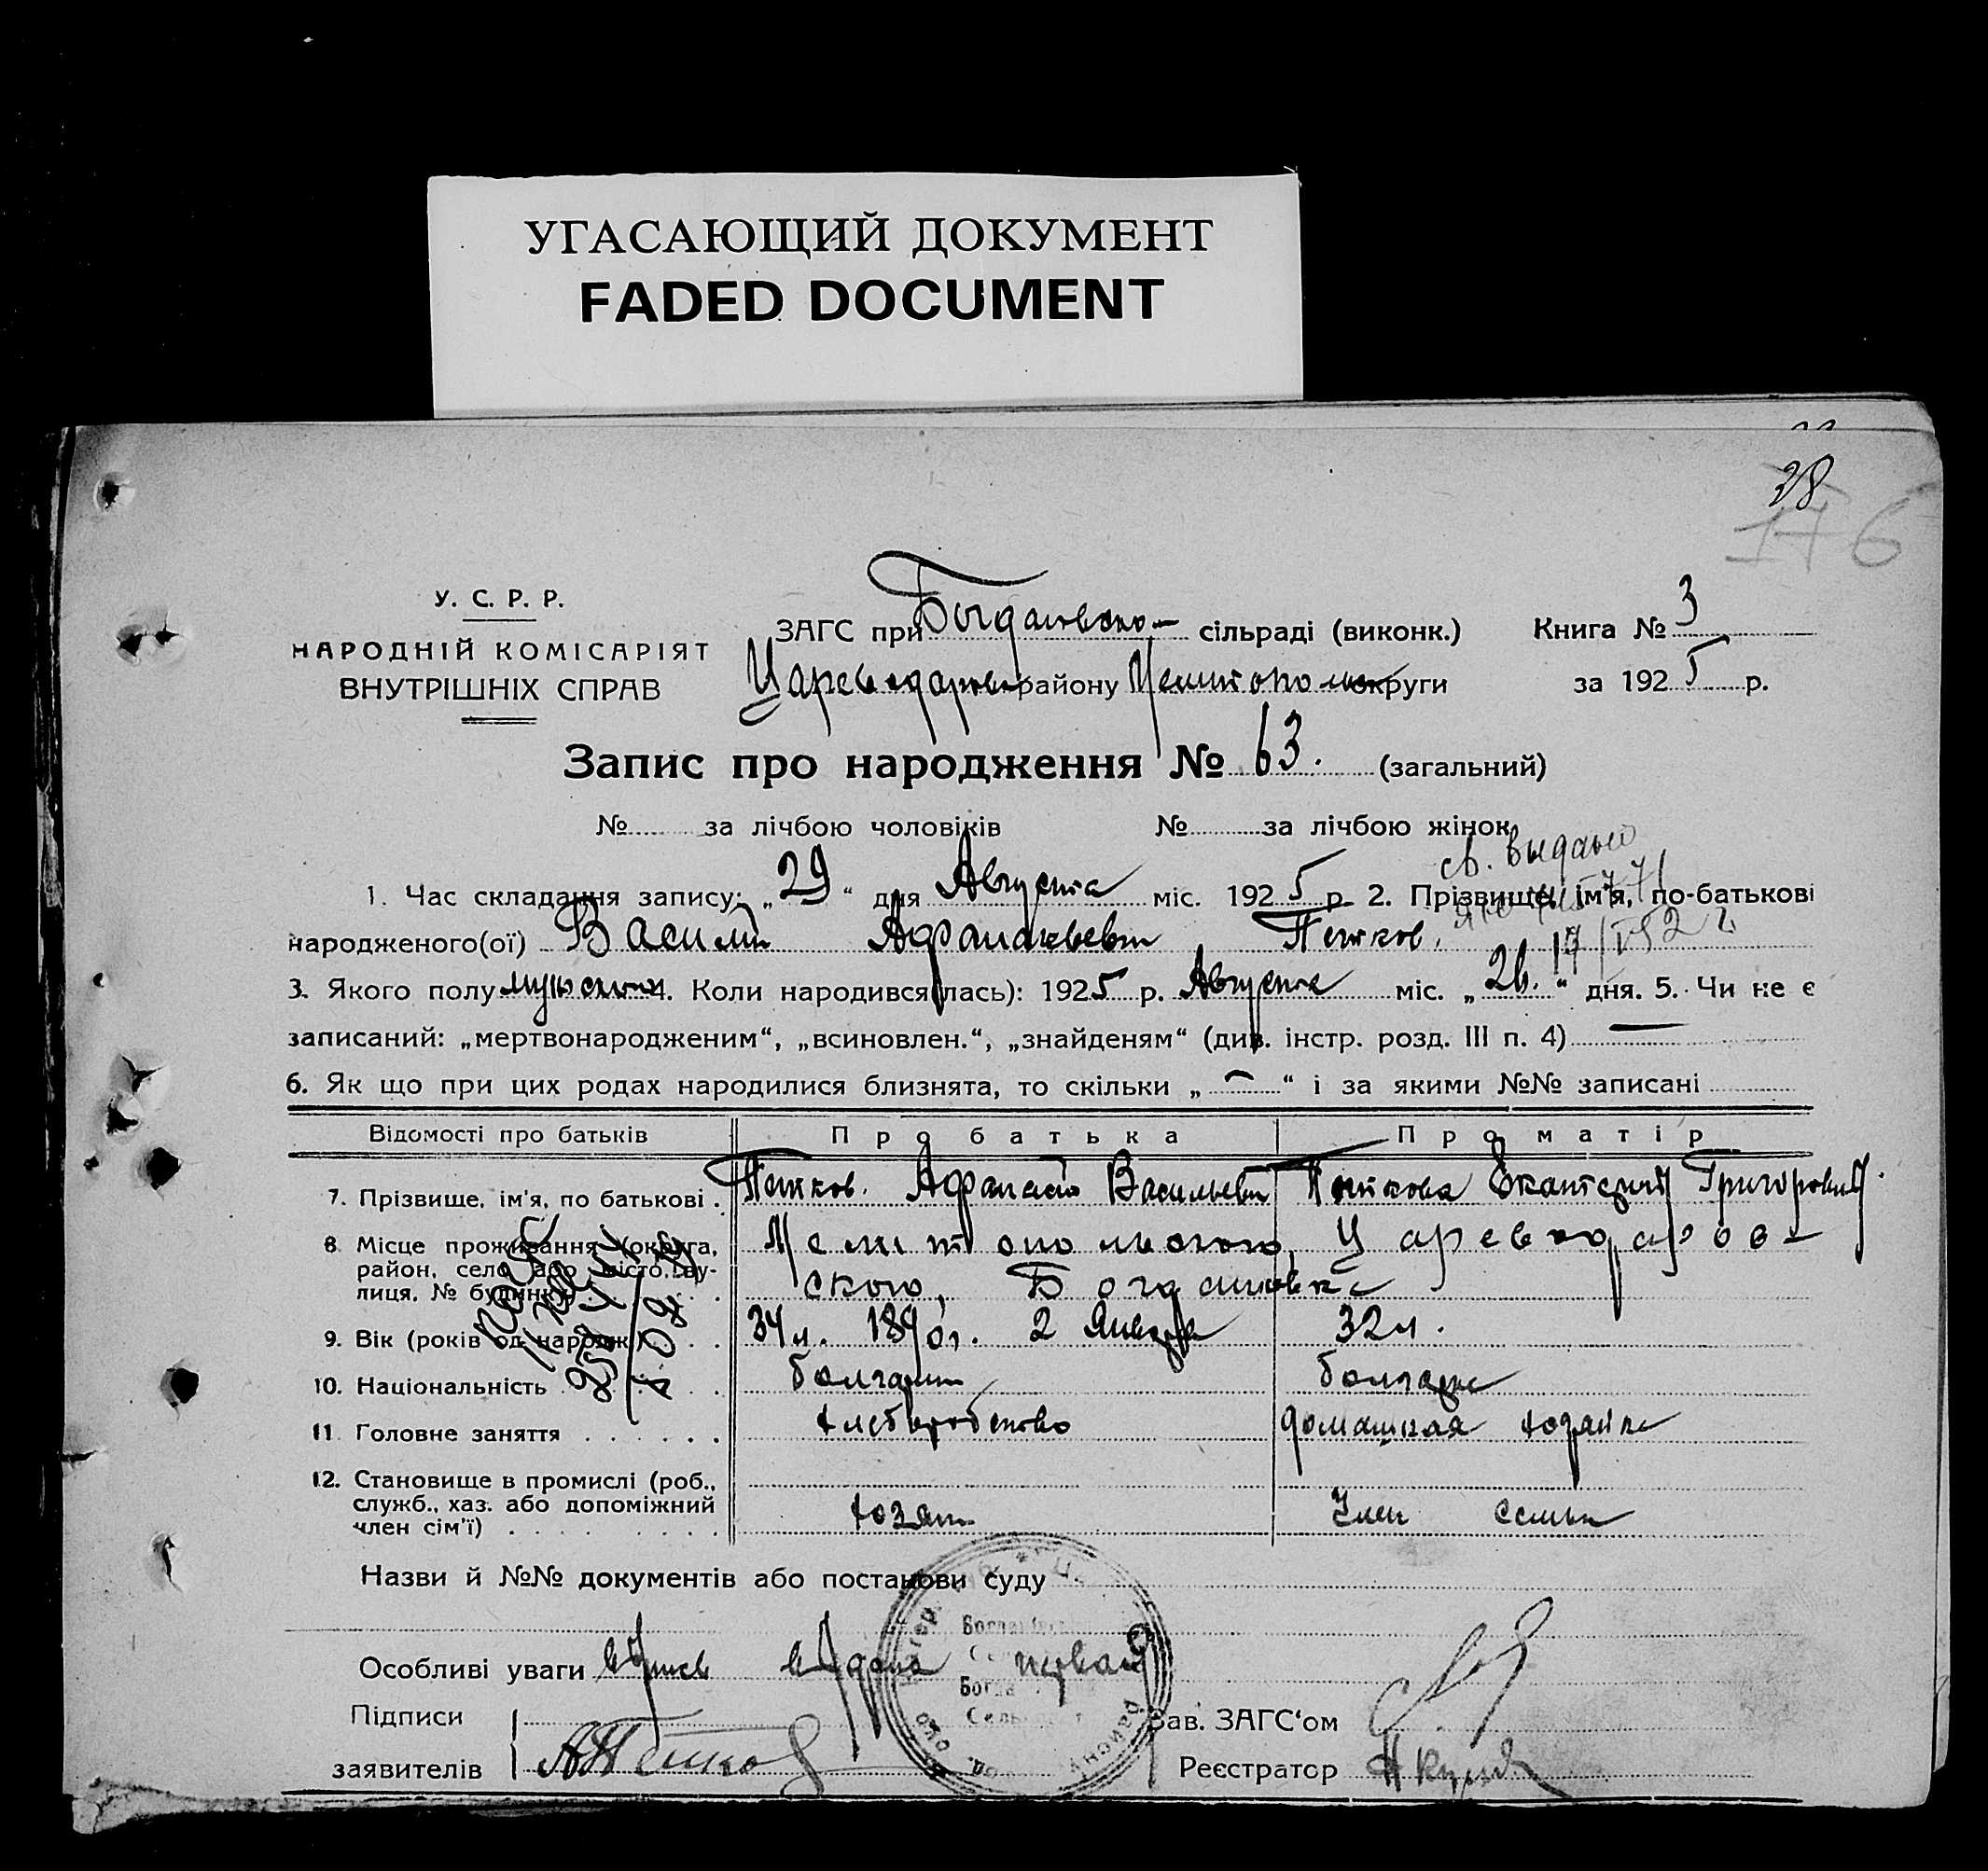 УГАСАЮЩИЙ ДОКУМЕНТ
FADED DOCUMENT
38
176
У. С. Р. Р.
НАРОДНІЙ КОМІСАРІЯТ
ВНУТРІШНІХ СПРАВ
ЗАГС при сільраді (виконк.)
Книга № 3
району округи
за 1925 р.
Запис про народження № 63. (загальний)
№ за лічбою чоловіків № за лічбою жінок
св. выдано
1. Час складання запису: „29“ дня Августа міс. 1925 р. 2. Прізвище, ім'я, по-батькові
народженого(ої) Василий Афанасьевич Петков.
3. Якого полу 4. Коли народився(лась): 1925 р. Августа міс. „26.“ дня. 5. Чи не є
записаний: „мертвонародженим“, „всиновлен.“, „знайденям“ (див. інстр. розд. III п. 4) —
6. Як що при цих родах народилися близнята, то скільки „—“ і за якими №№ записані
Відомості про батьків Про батька Про матір
7. Прізвище, ім'я, по батькові . Петков. Афанасий Васильевич Петкова Григоровна
8. Місце проживання (округа, район, село або місто, ву-
лиця, № будинку) Мелитопольского, Царевода
ского, Богдановка
9. Вік (років од народж.) . . 34 л. 1890 г. 2 Января 32 л.
10. Національність болгарин болгарка
11. Головне заняття . . . . . . хлеборобство домашняя хозяйка
12. Становище в промислі (роб.,
служб., хаз. або допоміжний
член сім'ї) . . . . . . . . . хозяин Член семьи
Назви й №№ документів або постанови суду
Особливі уваги выдана первая
Підписи
заявителів А Петков
Зав. ЗАГС'ом
Реєстратор